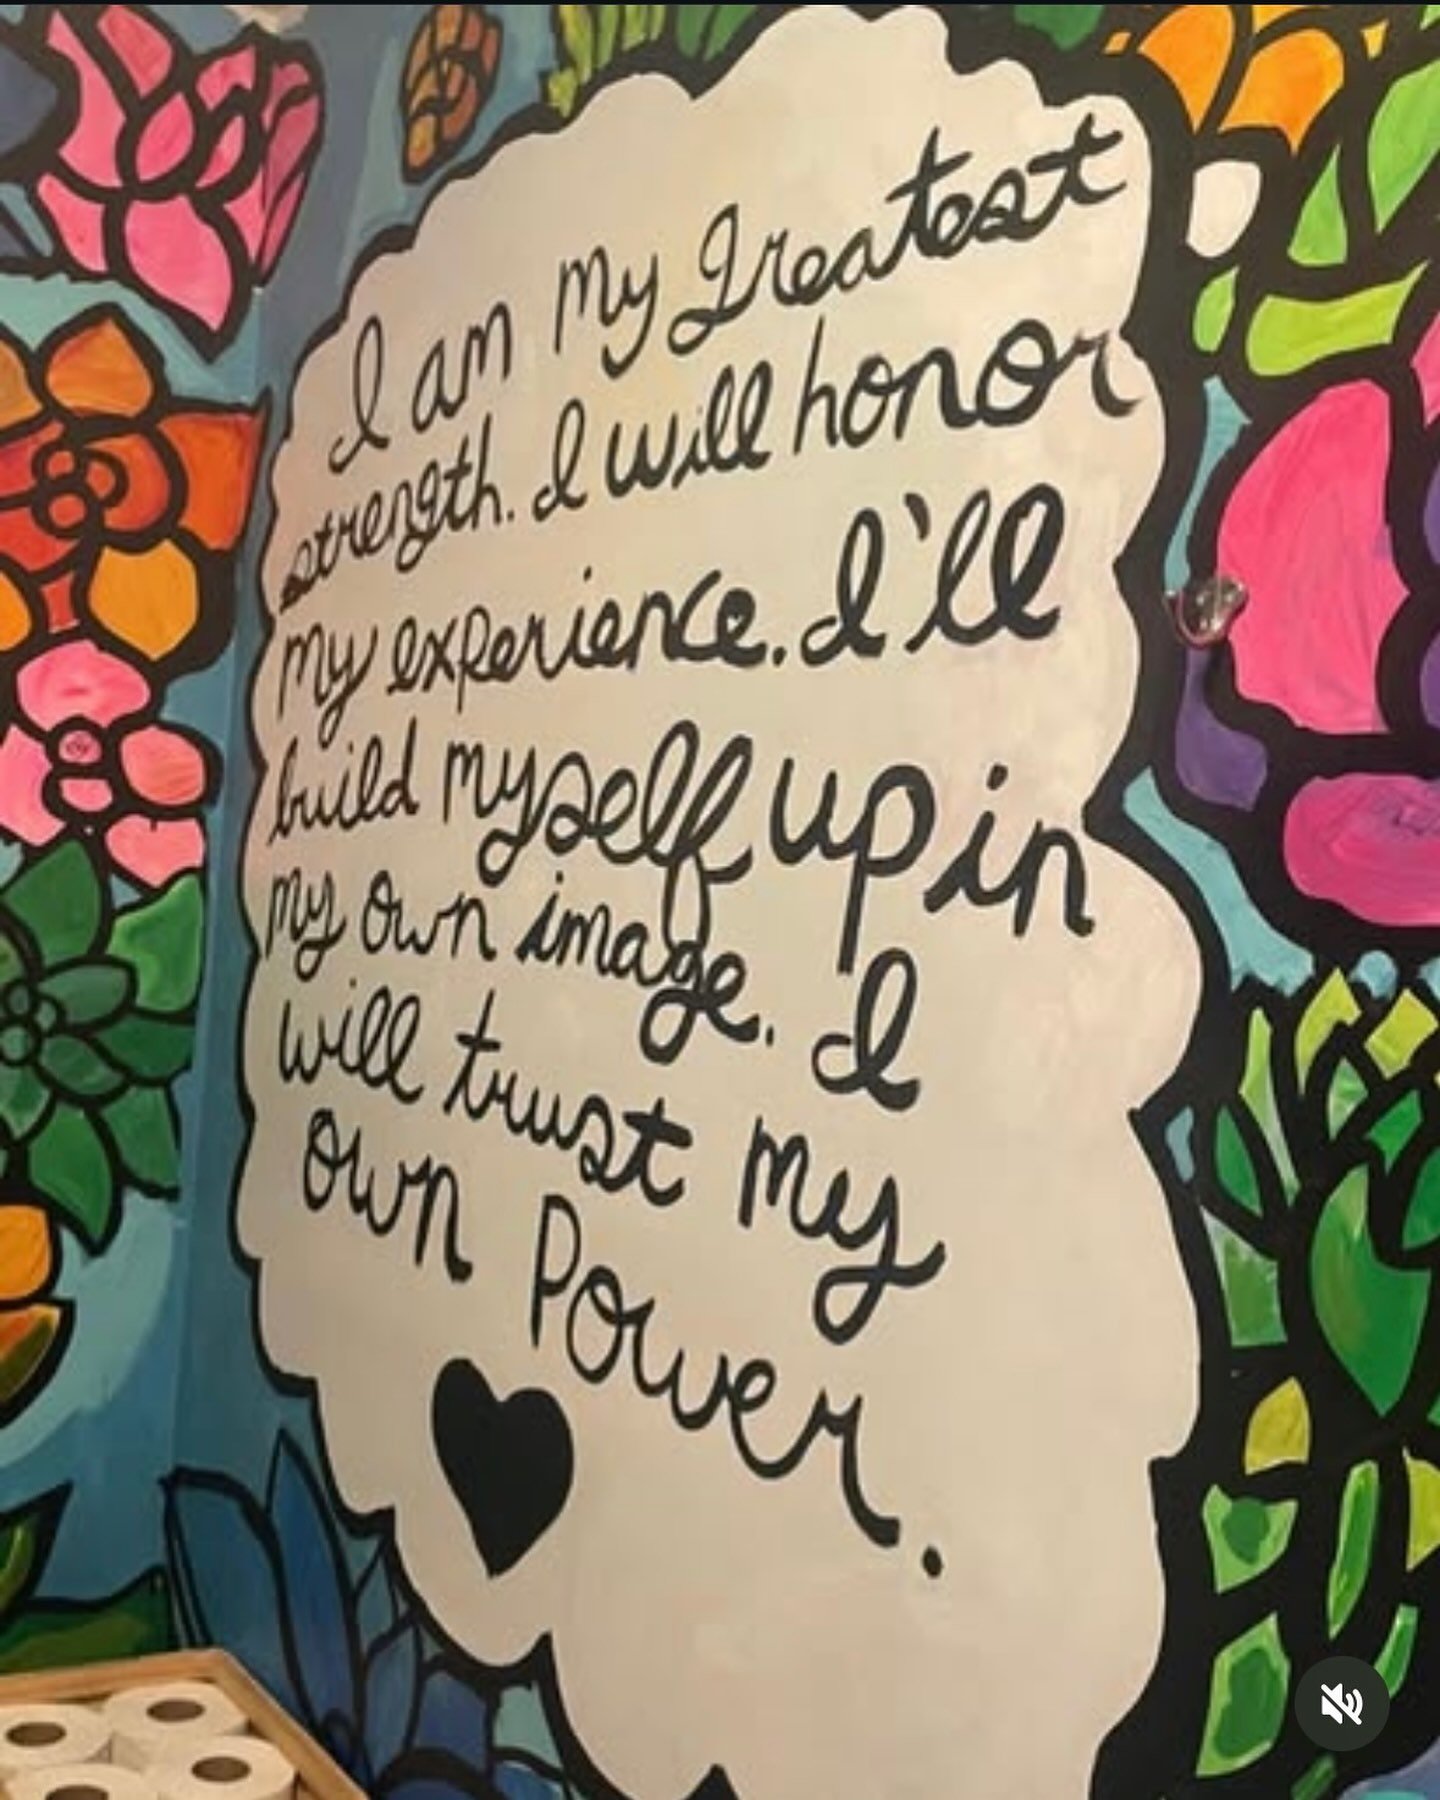 I am my greatest
strength. I will honor
my experience. I'll
build myself up in
my own image. I
will trust my
own power.